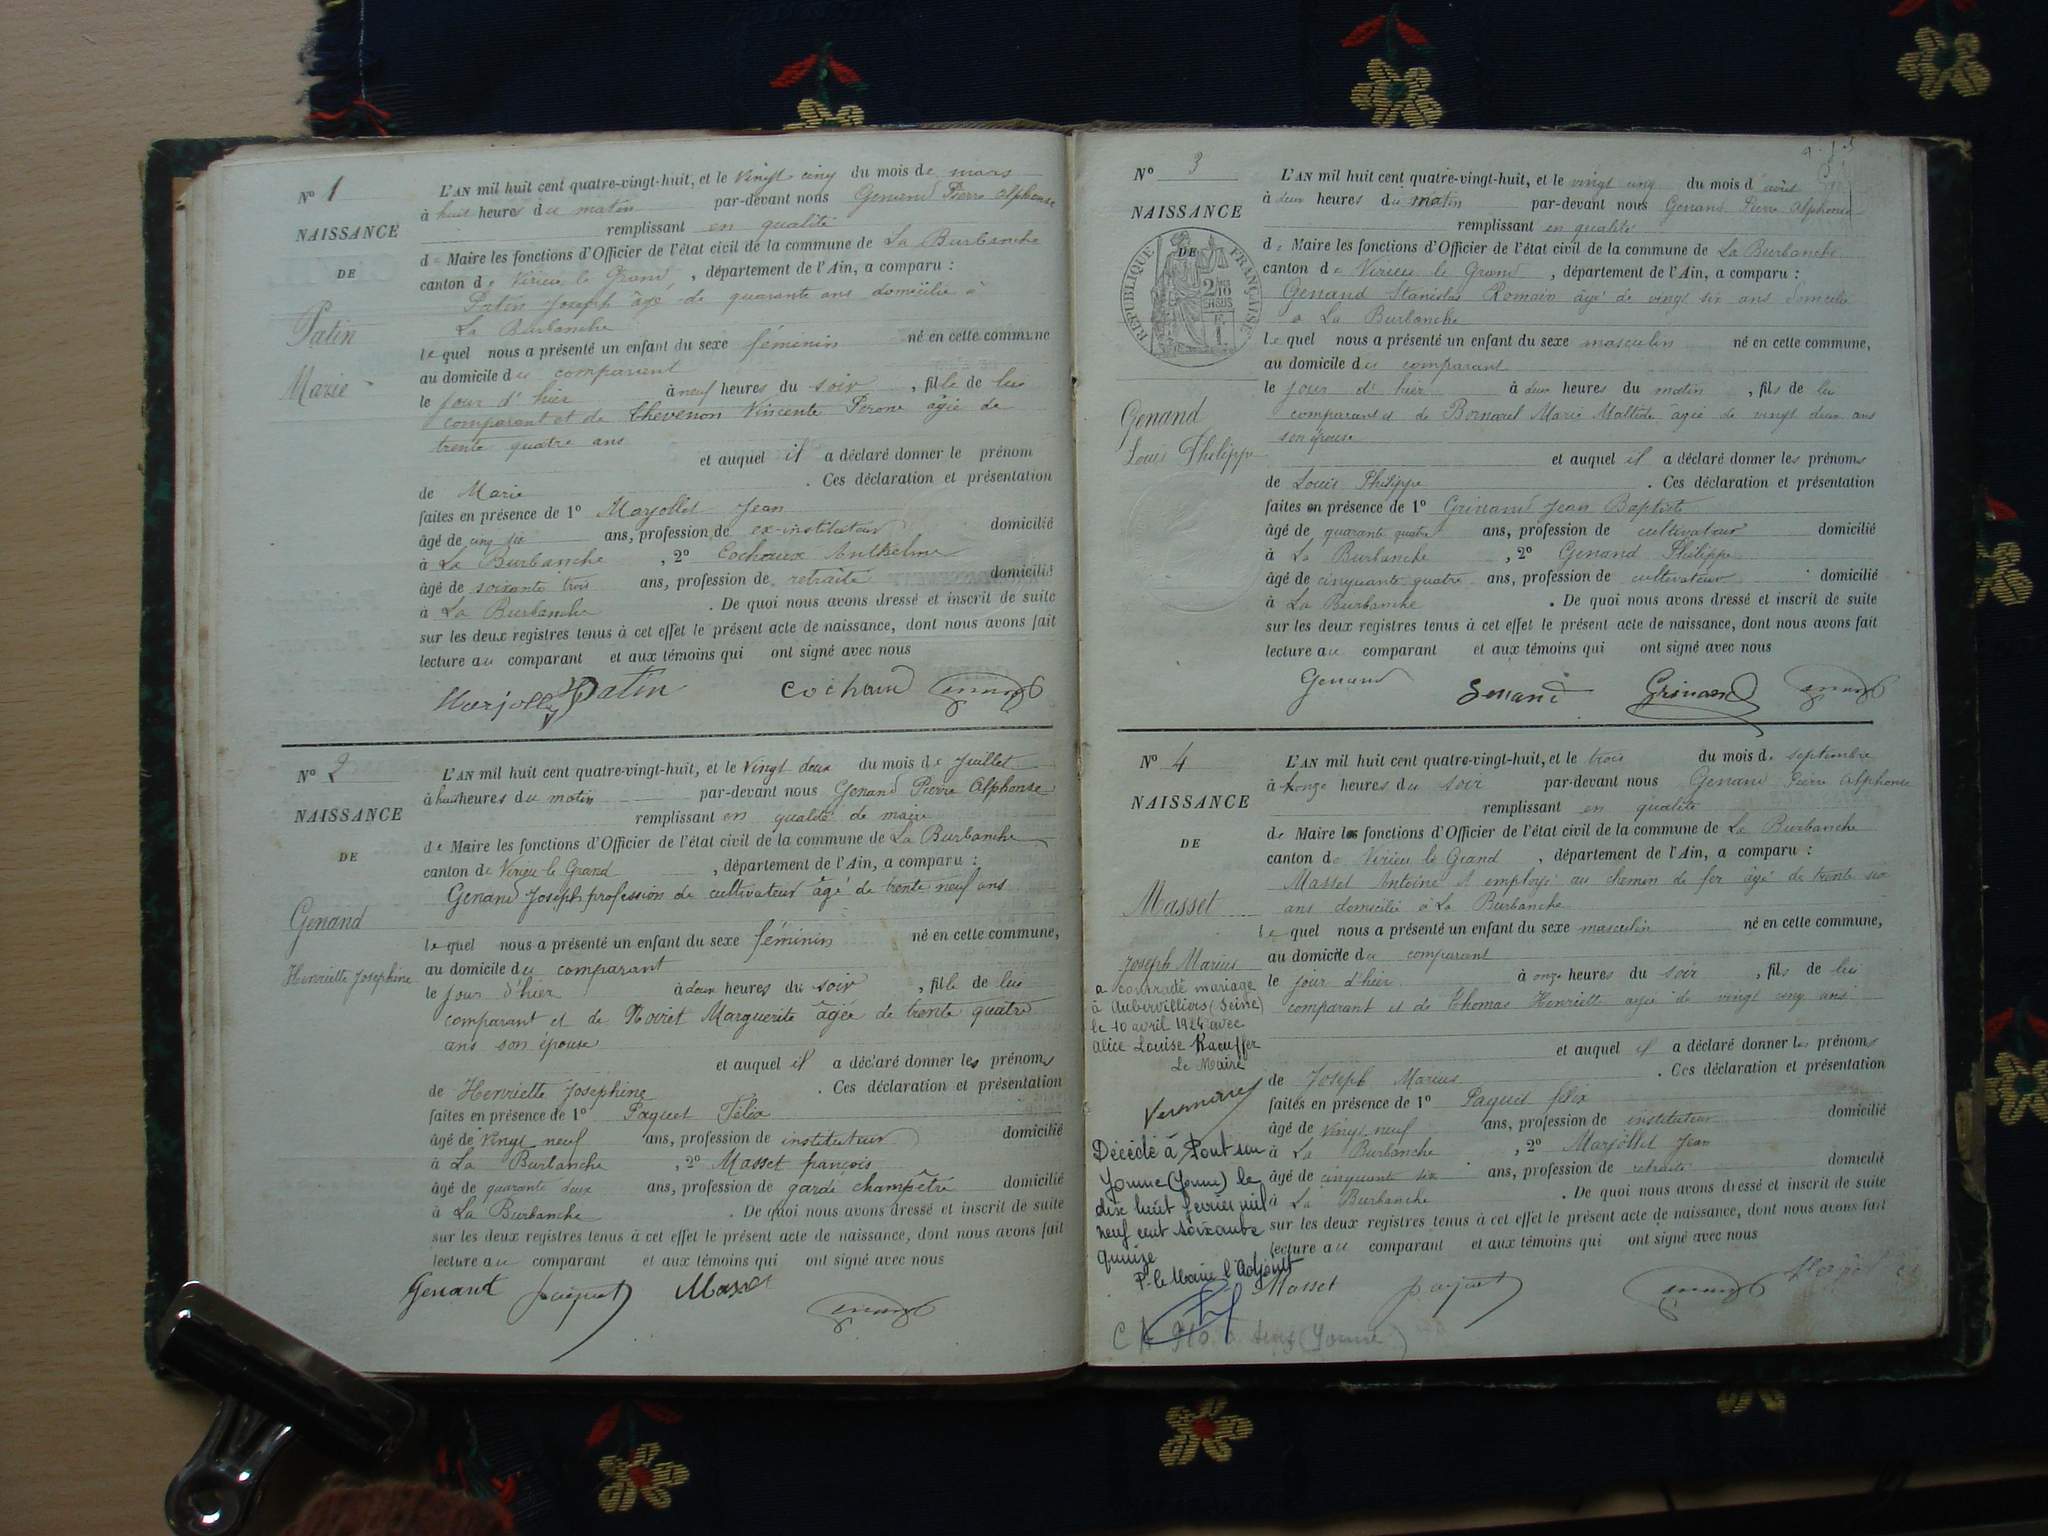 N° 1
NAISSANCE
DE
Patin
Marie
L'AN mil huit cent quatre-vingt-huit, et le Vingt cinq du mois de mars
à huit heures du matin par-devant nous Genand Pierre Alphonse
remplissant en qualité
de Maire les fonctions d'Officier de l'état civil de la commune de La Burbanche
canton de Virieu le Grand, département de l'Ain, a comparu :
Patin Joseph âgé de quarante ans domicilié à
La Burbanche
lequel nous a présenté un enfant du sexe féminin né en cette commune
au domicile du comparant
le jour d'hier à neuf heures du soir, fille de lui
comparant et de Thevenon Vincente Perone âgée de
trente quatre ans
et auquel il a déclaré donner le prénom
de Marie . Ces déclaration et présentation
faites en présence de 1° Marjollet Jean
âgé de ans, profession de ex-instituteur domicilié
à La Burbanche, 2° Cochoux Anthelme
âgé de soixante trois ans, profession de retraité domicilié
à La Burbanche . De quoi nous avons dressé et inscrit de suite
sur les deux registres tenus à cet effet le présent acte de naissance, dont nous avons fait
lecture au comparant et aux témoins qui ont signé avec nous
Marjollet Patin
N° 2
NAISSANCE
DE
Genand
Henriette Josephine
L'AN mil huit cent quatre-vingt-huit, et le Vingt deux du mois de Juillet
à huit heures du matin par-devant nous Genand Pierre Alphonse
remplissant en qualité de maire
de Maire les fonctions d'Officier de l'état civil de la commune de La Burbanche
canton de Virieu le Grand, département de l'Ain, a comparu :
Genand Joseph profession de cultivateur âgé de trente neuf ans
lequel nous a présenté un enfant du sexe féminin né en cette commune,
au domicile du comparant
le jour d'hier à deux heures du soir, fille de lui
comparant et de Noiret Marguerite âgée de trente quatre
ans son épouse
et auquel il a déclaré donner les prénoms
de Henriette Josephine . Ces déclaration et présentation
faites en présence de 1° Paquet Félix
âgé de Vingt neuf ans, profession de instituteur domicilié
à La Burbanche, 2° Masset françois
âgé de quarante deux ans, profession de garde champêtre domicilié
à La Burbanche . De quoi nous avons dressé et inscrit de suite
sur les deux registres tenus à cet effet le présent acte de naissance, dont nous avons fait
lecture au comparant et aux témoins qui ont signé avec nous
Genand paquet Masset
N° 3
NAISSANCE
DE
RÉPUBLIQUE FRANÇAISE
Genand
Louis Philippe
L'AN mil huit cent quatre-vingt-huit, et le vingt cinq du mois d'août
à deux heures du matin par-devant nous Genand Pierre Alphonse
remplissant en qualité
de Maire les fonctions d'Officier de l'état civil de la commune de La Burbanche
canton de Virieu le Grand, département de l'Ain, a comparu :
Genand Stanislas Romain âgé de vingt six ans domicilié
à La Burbanche
lequel nous a présenté un enfant du sexe masculin né en cette commune,
au domicile du comparant
le jour d'hier à deux heures du matin, fils de lui
comparant et de Bornarel Marie Mathilde âgée de vingt deux ans
son épouse
et auquel il a déclaré donner les prénoms
de Louis Philippe . Ces déclaration et présentation
faites en présence de 1° Grinand Jean Baptiste
âgé de quarante quatre ans, profession de cultivateur domicilié
à La Burbanche, 2° Genand Philippe
âgé de cinquante quatre ans, profession de cultivateur domicilié
à La Burbanche . De quoi nous avons dressé et inscrit de suite
sur les deux registres tenus à cet effet le présent acte de naissance, dont nous avons fait
lecture au comparant et aux témoins qui ont signé avec nous
Genand Genand Grinand
N° 4
NAISSANCE
DE
Masset
Joseph Marius
a contracté mariage
à Aubervilliers (Seine)
le 10 avril 1924 avec
Alice Louise Kaeuffer
Le Maire
Décédé à Pont sur
Yonne (Yonne) le
dix huit février mil
neuf cent soixante
quinze
P. le Maire l'Adjoint
L'AN mil huit cent quatre-vingt-huit, et le trois du mois de septembre
à onze heures du soir par-devant nous Genand Pierre Alphonse
remplissant en qualité
de Maire les fonctions d'Officier de l'état civil de la commune de La Burbanche
canton de Virieu le Grand, département de l'Ain, a comparu :
Masset Antoine employé au chemin de fer âgé de trente six
ans domicilié à La Burbanche
lequel nous a présenté un enfant du sexe masculin né en cette commune,
au domicile du comparant
le jour d'hier à onze heures du soir, fils de lui
comparant et de Thomas Henriette agée de vingt cinq ans
et auquel il a déclaré donner les prénoms
de Joseph Marius . Ces déclaration et présentation
faites en présence de 1° Paquet félix
âgé de vingt neuf ans, profession de instituteur domicilié
à La Burbanche, 2° Marjollet Jean
âgé de cinquante six ans, profession de retraité domicilié
à La Burbanche . De quoi nous avons dressé et inscrit de suite
sur les deux registres tenus à cet effet le présent acte de naissance, dont nous avons fait
lecture au comparant et aux témoins qui ont signé avec nous
Masset paquet
(Yonne)